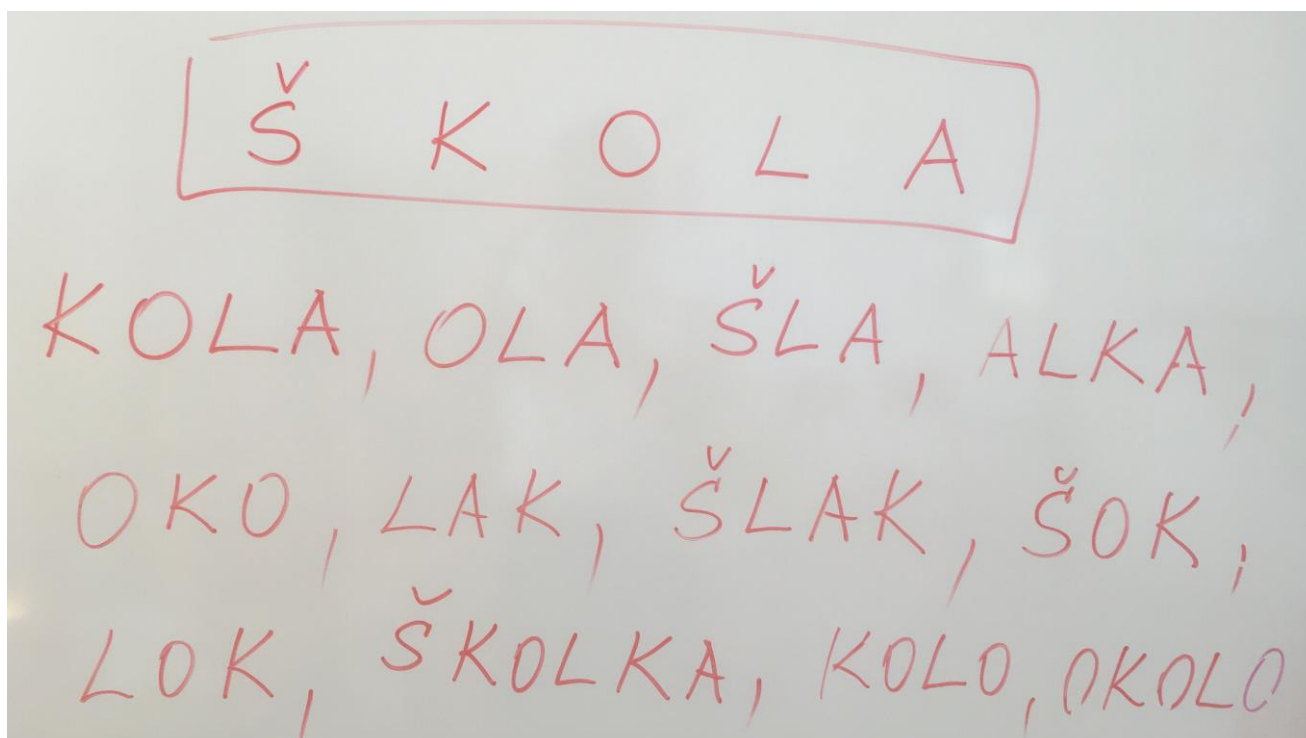 ŠKOLA
KOLA, OLA, ŠLA, ALKA,
OKO, LAK, ŠLAK, ŠOK,
LOK, ŠKOLKA, KOLO, OKOLO